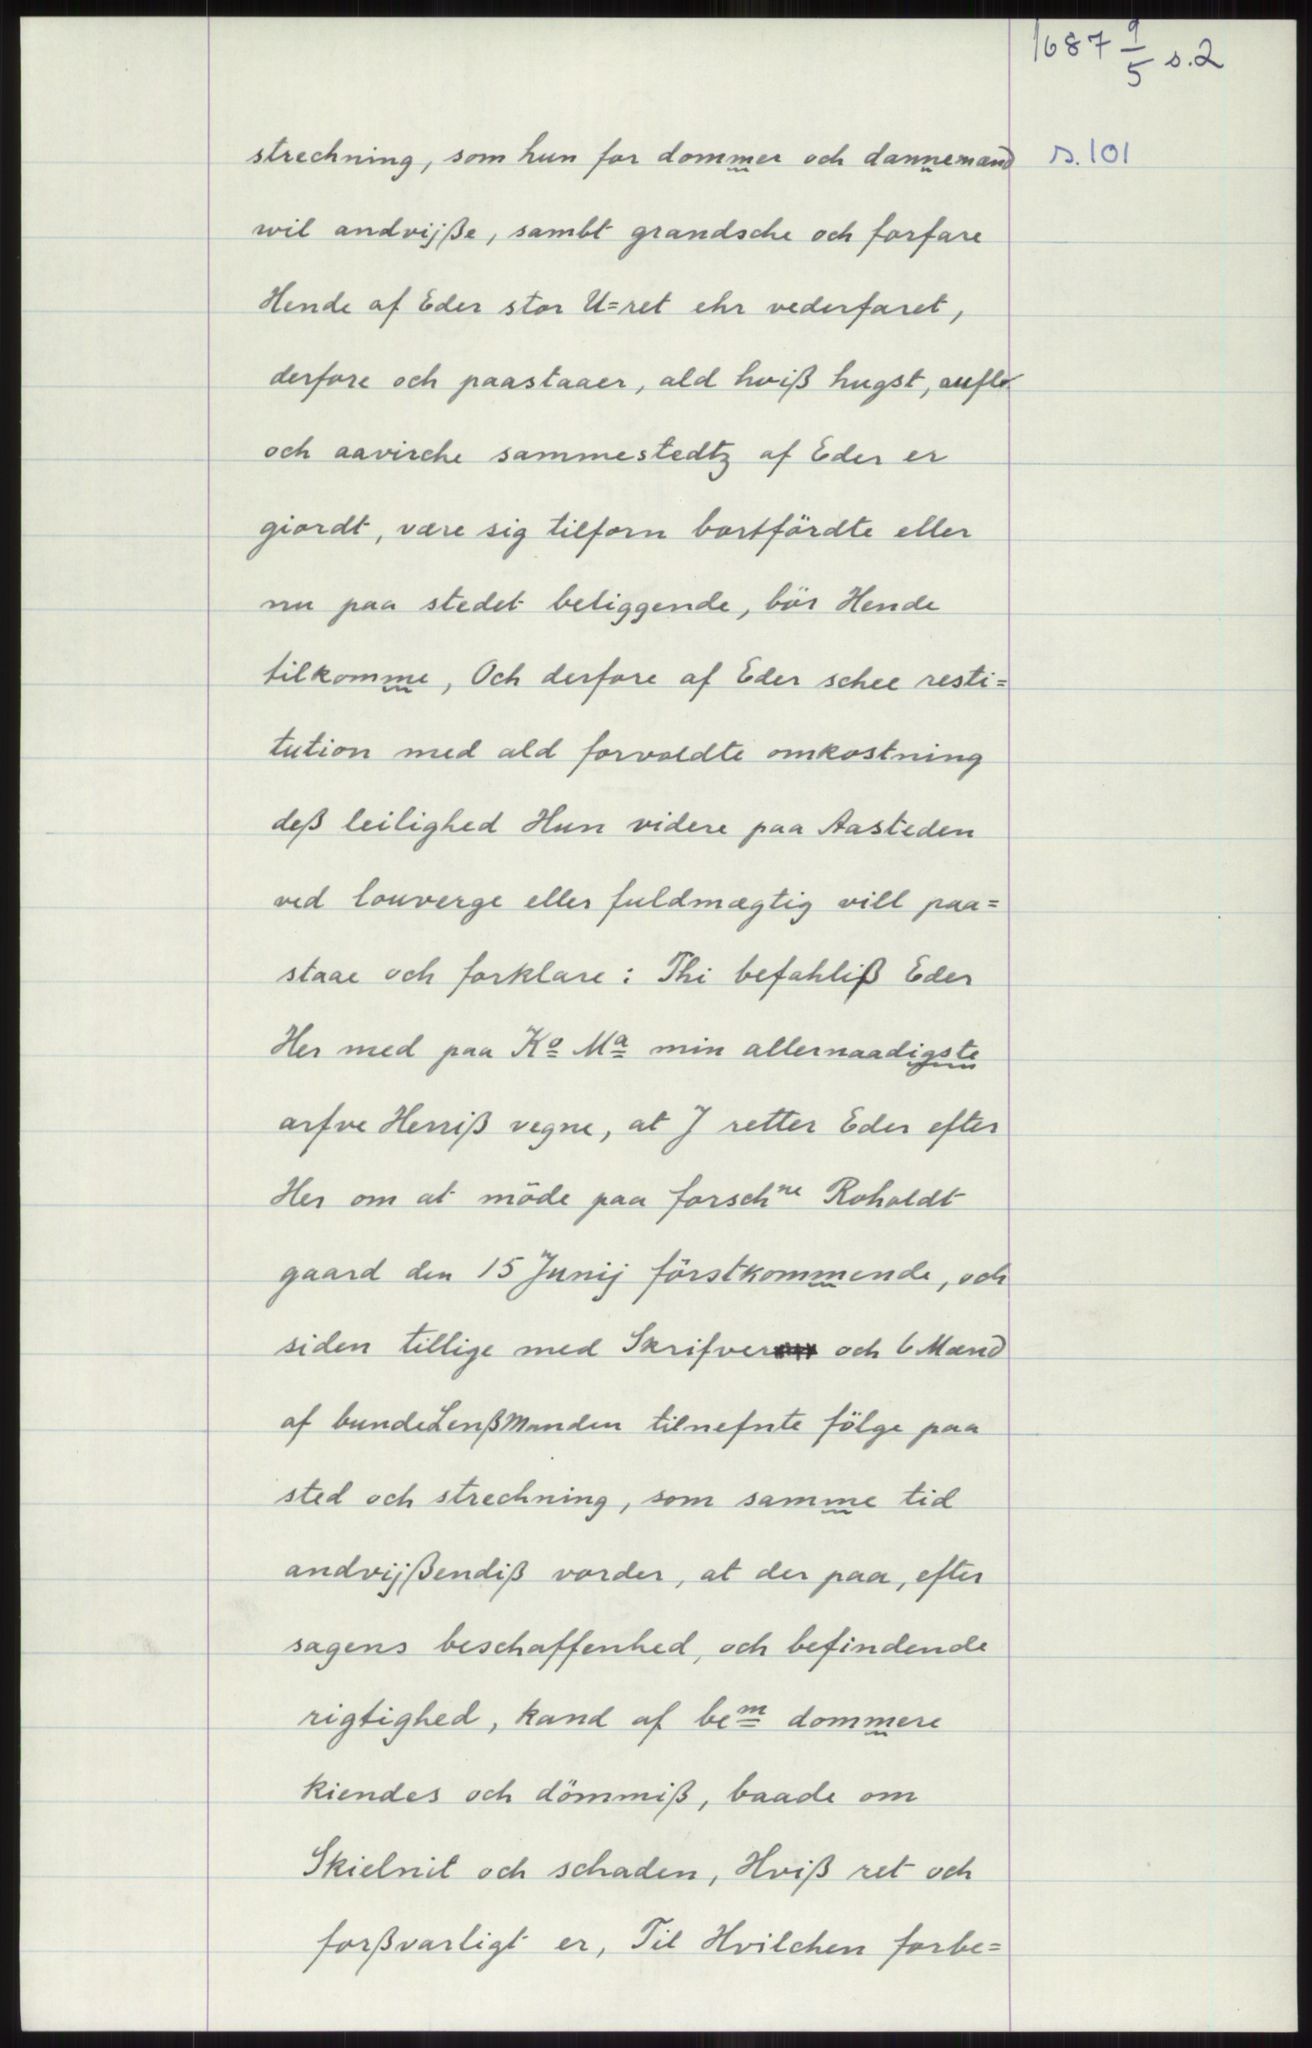 1687 9/5 s.2
strechning, som hun for dommer och dannemænd s.101
wil andvijße, sambt grandsche och forfare
Hende af Eder stor U=ret ehr vederfaret,
derfore och paastaaer, ald hviß hugst,
och aavirche sammestedtz af Eder er
giordt, være sig tilforn bortfördte eller
nu paa stedet beliggende, bör Hende
tilkomme, Och derfore af Eder schee resti=
tution med ald forvoldte omkostning
deß leilighed Hun videre paa Aasteden
ved louverge eller fuldmægtig vill paa=
staae och forklare : Thi befahliß Eder
Her med paa Ko Ma min allernaadigste
arfve Herriß vegne, at J retter Eder efter
Her om at möde paa forschne Roholdt
gaard den 15 Junij förstkommende, och
siden tillige med Skrifver och 6 Mænd
af bundeLenßManden tilnefnte fölge paa
sted och strechning, som samme tid
andvijßendiß vorder, at der paa, efter
sagens beschaffenhed, och befindende
rigtighed, kand af bem dommere
kiendes och dömmiß, baade om
Skielnit och schaden, Hviß ret och
forßvarligt er, Til Hvilchen forbe=